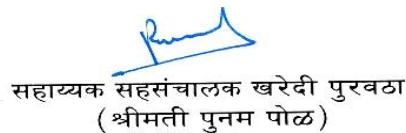 सहाय्यक सहसंचालक खरेदी पुरवठा
(श्रीमती पुनम पोळ)